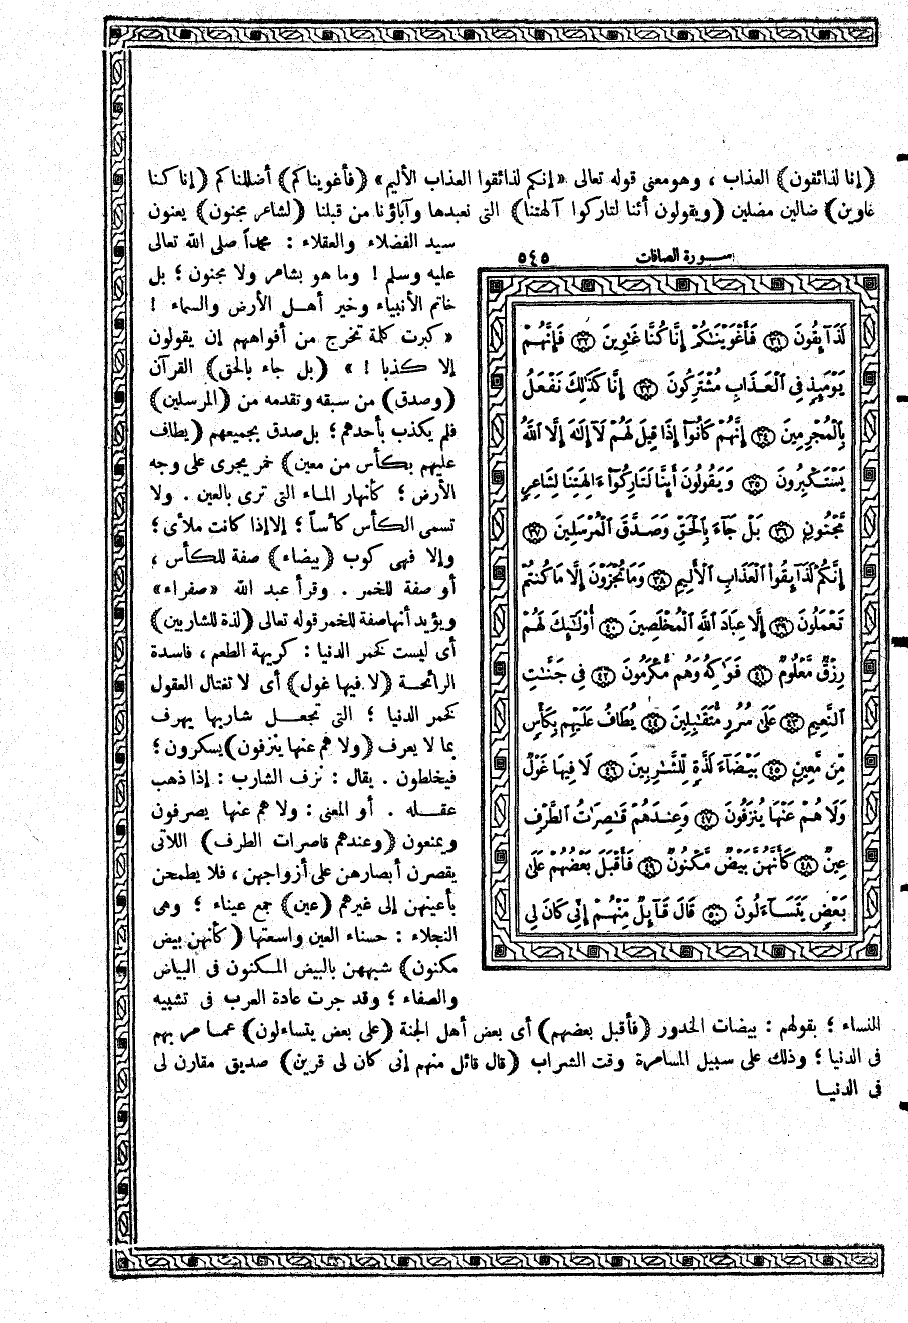 (إنا لذائقون) العذاب ، وهو معنى قوله تعالى «إنكم لذائقوا العذاب الأليم» (فأغويناكم) أضللناكم (إنا كنا
غاوين) ضالين مضلين (ويقولون أئنا لتاركوا آلهتنا) التى نعبدها وآباؤنا من قبلنا (لشاعر مجنون) يعنون
سيد الفضلاء والعقلاء : محمداً صلى الله تعالى
عليه وسلم ! وما هو بشاعر ولا مجنون ؛ بل
خاتم الأنبياء وخير أهل الأرض والسماء !
«كبرت كلمة تخرج من أفواههم إن يقولون
إلا كذبا ! » (بل جاء بالحق) القرآن
(وصدق) من سبقه وتقدمه من (المرسلين)
فلم يكذب بأحدهم ؛ بل صدق بجميعهم (يطاف
عليهم بكأس من معين) خمر يجرى على وجه
الأرض ؛ كأنهار الماء التى ترى بالعين . ولا
تسمى الكأس كأساً ؛ إلا إذا كانت ملأى ؛
وإلا فهى كوب (بيضاء) صفة للكأس ،
أو صفة للخمر . وقرأ عبد الله «صفراء»
ويؤيد أنها صفة للخمر قوله تعالى (لذة للشاربين)
أى ليست كخمر الدنيا : كريهة الطعم ، فاسدة
الرائحة (لا فيها غول) أى لا تغتال العقول
كخمر الدنيا ؛ التى تجعل شاربها يهرف
بما لا يعرف (ولا هم عنها ينزفون) يسكرون ؛
فيخلطون . يقال : نزف الشارب : إذا ذهب
عقله . أو المعنى : ولا هم عنها يصرفون
ويمنعون (وعندهم قاصرات الطرف) اللاتى
يقصرن أبصارهن على أزواجهن ، فلا يطمحن
بأعينهن إلى غيرهم (عين) جمع عيناء ؛ وهى
النجلاء : حسناء العين واسعتها (كأنهن بيض
مكنون) شبههن بالبيض المكنون فى البياض
والصفاء ؛ وقد جرت عادة العرب فى تشبيه
سورة الصافات ٥٤٥
لَذَآئِقُونَ ٣١ فَأَغْوَيْنَٰكُمْ إِنَّا كُنَّا غَٰوِينَ ٣٢ فَإِنَّهُمْ
يَوْمَئِذٍ فِى ٱلْعَذَابِ مُشْتَرِكُونَ ٣٣ إِنَّا كَذَٰلِكَ نَفْعَلُ
بِٱلْمُجْرِمِينَ ٣٤ إِنَّهُمْ كَانُوٓا۟ إِذَا قِيلَ لَهُمْ لَآ إِلَٰهَ إِلَّا ٱللَّهُ
يَسْتَكْبِرُونَ ٣٥ وَيَقُولُونَ أَئِنَّا لَتَارِكُوٓا۟ ءَالِهَتِنَا لِشَاعِرٍ
مَّجْنُونٍۭ ٣٦ بَلْ جَآءَ بِٱلْحَقِّ وَصَدَّقَ ٱلْمُرْسَلِينَ ٣٧
إِنَّكُمْ لَذَآئِقُوا۟ ٱلْعَذَابِ ٱلْأَلِيمِ ٣٨ وَمَا تُجْزَوْنَ إِلَّا مَا كُنتُمْ
تَعْمَلُونَ ٣٩ إِلَّا عِبَادَ ٱللَّهِ ٱلْمُخْلَصِينَ ٤٠ أُو۟لَٰٓئِكَ لَهُمْ
رِزْقٌ مَّعْلُومٌ ٤١ فَوَٰكِهُ وَهُم مُّكْرَمُونَ ٤٢ فِى جَنَّٰتِ
ٱلنَّعِيمِ ٤٣ عَلَىٰ سُرُرٍ مُّتَقَٰبِلِينَ ٤٤ يُطَافُ عَلَيْهِم بِكَأْسٍ
مِّن مَّعِينٍۭ ٤٥ بَيْضَآءَ لَذَّةٍ لِّلشَّٰرِبِينَ ٤٦ لَا فِيهَا غَوْلٌ
وَلَا هُمْ عَنْهَا يُنزَفُونَ ٤٧ وَعِندَهُمْ قَٰصِرَٰتُ ٱلطَّرْفِ
عِينٌ ٤٨ كَأَنَّهُنَّ بَيْضٌ مَّكْنُونٌ ٤٩ فَأَقْبَلَ بَعْضُهُمْ عَلَىٰ
بَعْضٍ يَتَسَآءَلُونَ ٥٠ قَالَ قَآئِلٌ مِّنْهُمْ إِنِّى كَانَ لِى
النساء ؛ بقولهم : بيضات الخدور (فأقبل بعضهم) أى بعض أهل الجنة (على بعض يتساءلون) عما مر بهم
فى الدنيا ؛ وذلك على سبيل المسامرة وقت الشراب (قال قائل منهم إنى كان لى قرين) صديق مقارن لى
فى الدنيا